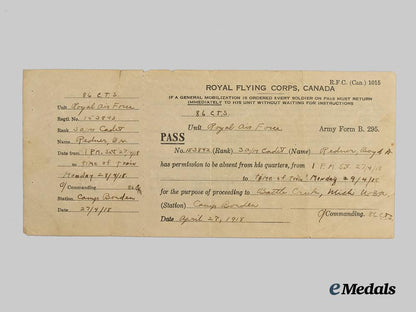 R.F.C. (Can.) 1015
ROYAL FLYING CORPS, CANADA
IF A GENERAL MOBILIZATION IS ORDERED EVERY SOLDIER ON PASS MUST RETURN
IMMEDIATELY TO HIS UNIT WITHOUT WAITING FOR INSTRUCTIONS
86 C.T.S.
Unit Royal Air Force
Army Form B. 295.
PASS
No. 152842 (Rank) Cadet (Name)
has permission to be absent from his quarters, from 1 P.M. 27/4/18
to time of train Monday 29/4/18
for the purpose of proceeding to Battle Creek, Mich. U.S.A.
(Station) Camp Borden
Commanding. 86 C.T.S.
Date April 27, 1918
86 C.T.S.
Unit Royal Air Force
Regtl No 152842
Rank Cadet
Name
Date from 1 P.M. 27/4/18
to time of train
Monday 29/4/18
Commanding
Station Camp Borden
Date 27/4/18
eMedals